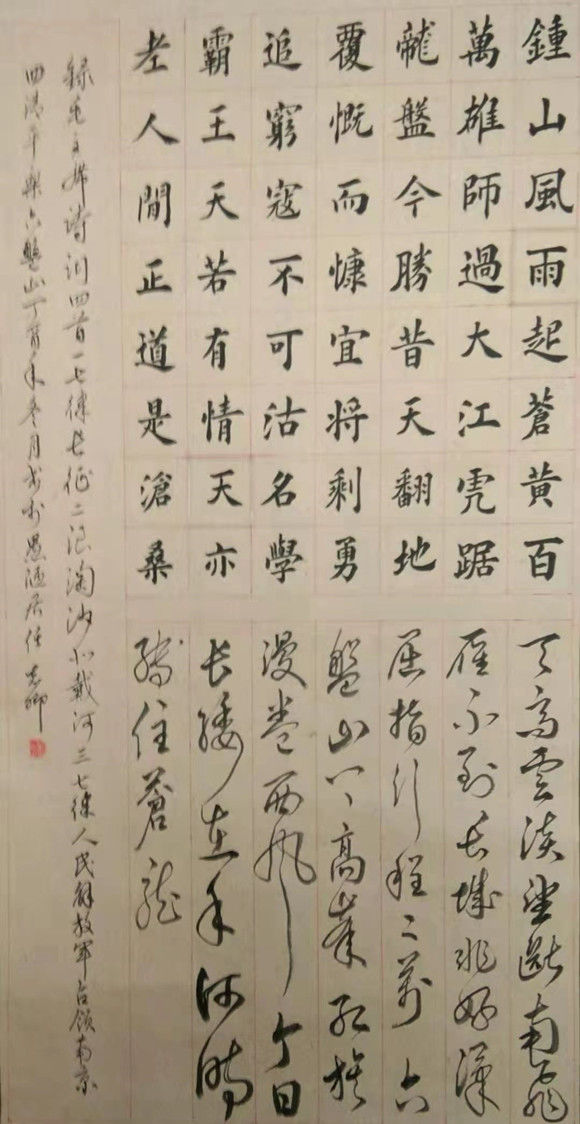 鍾山風雨起蒼黃百
萬雄師過大江虎踞
龍盤今勝昔天翻地
覆慨而慷宜將剩勇
追窮寇不可沽名學
霸王天若有情天亦
老人間正道是滄桑
天高雲淡望斷南飛
雁不到長城非好漢
屈指行程二萬六
盤山上高峰紅旗
漫卷西風今日
長纓在手何時
縛住蒼龍
錄毛主席詩詞四首一七律長征二浪淘沙北戴河三七律人民解放軍占領南京
四清平樂六盤山丁酉年冬月書於